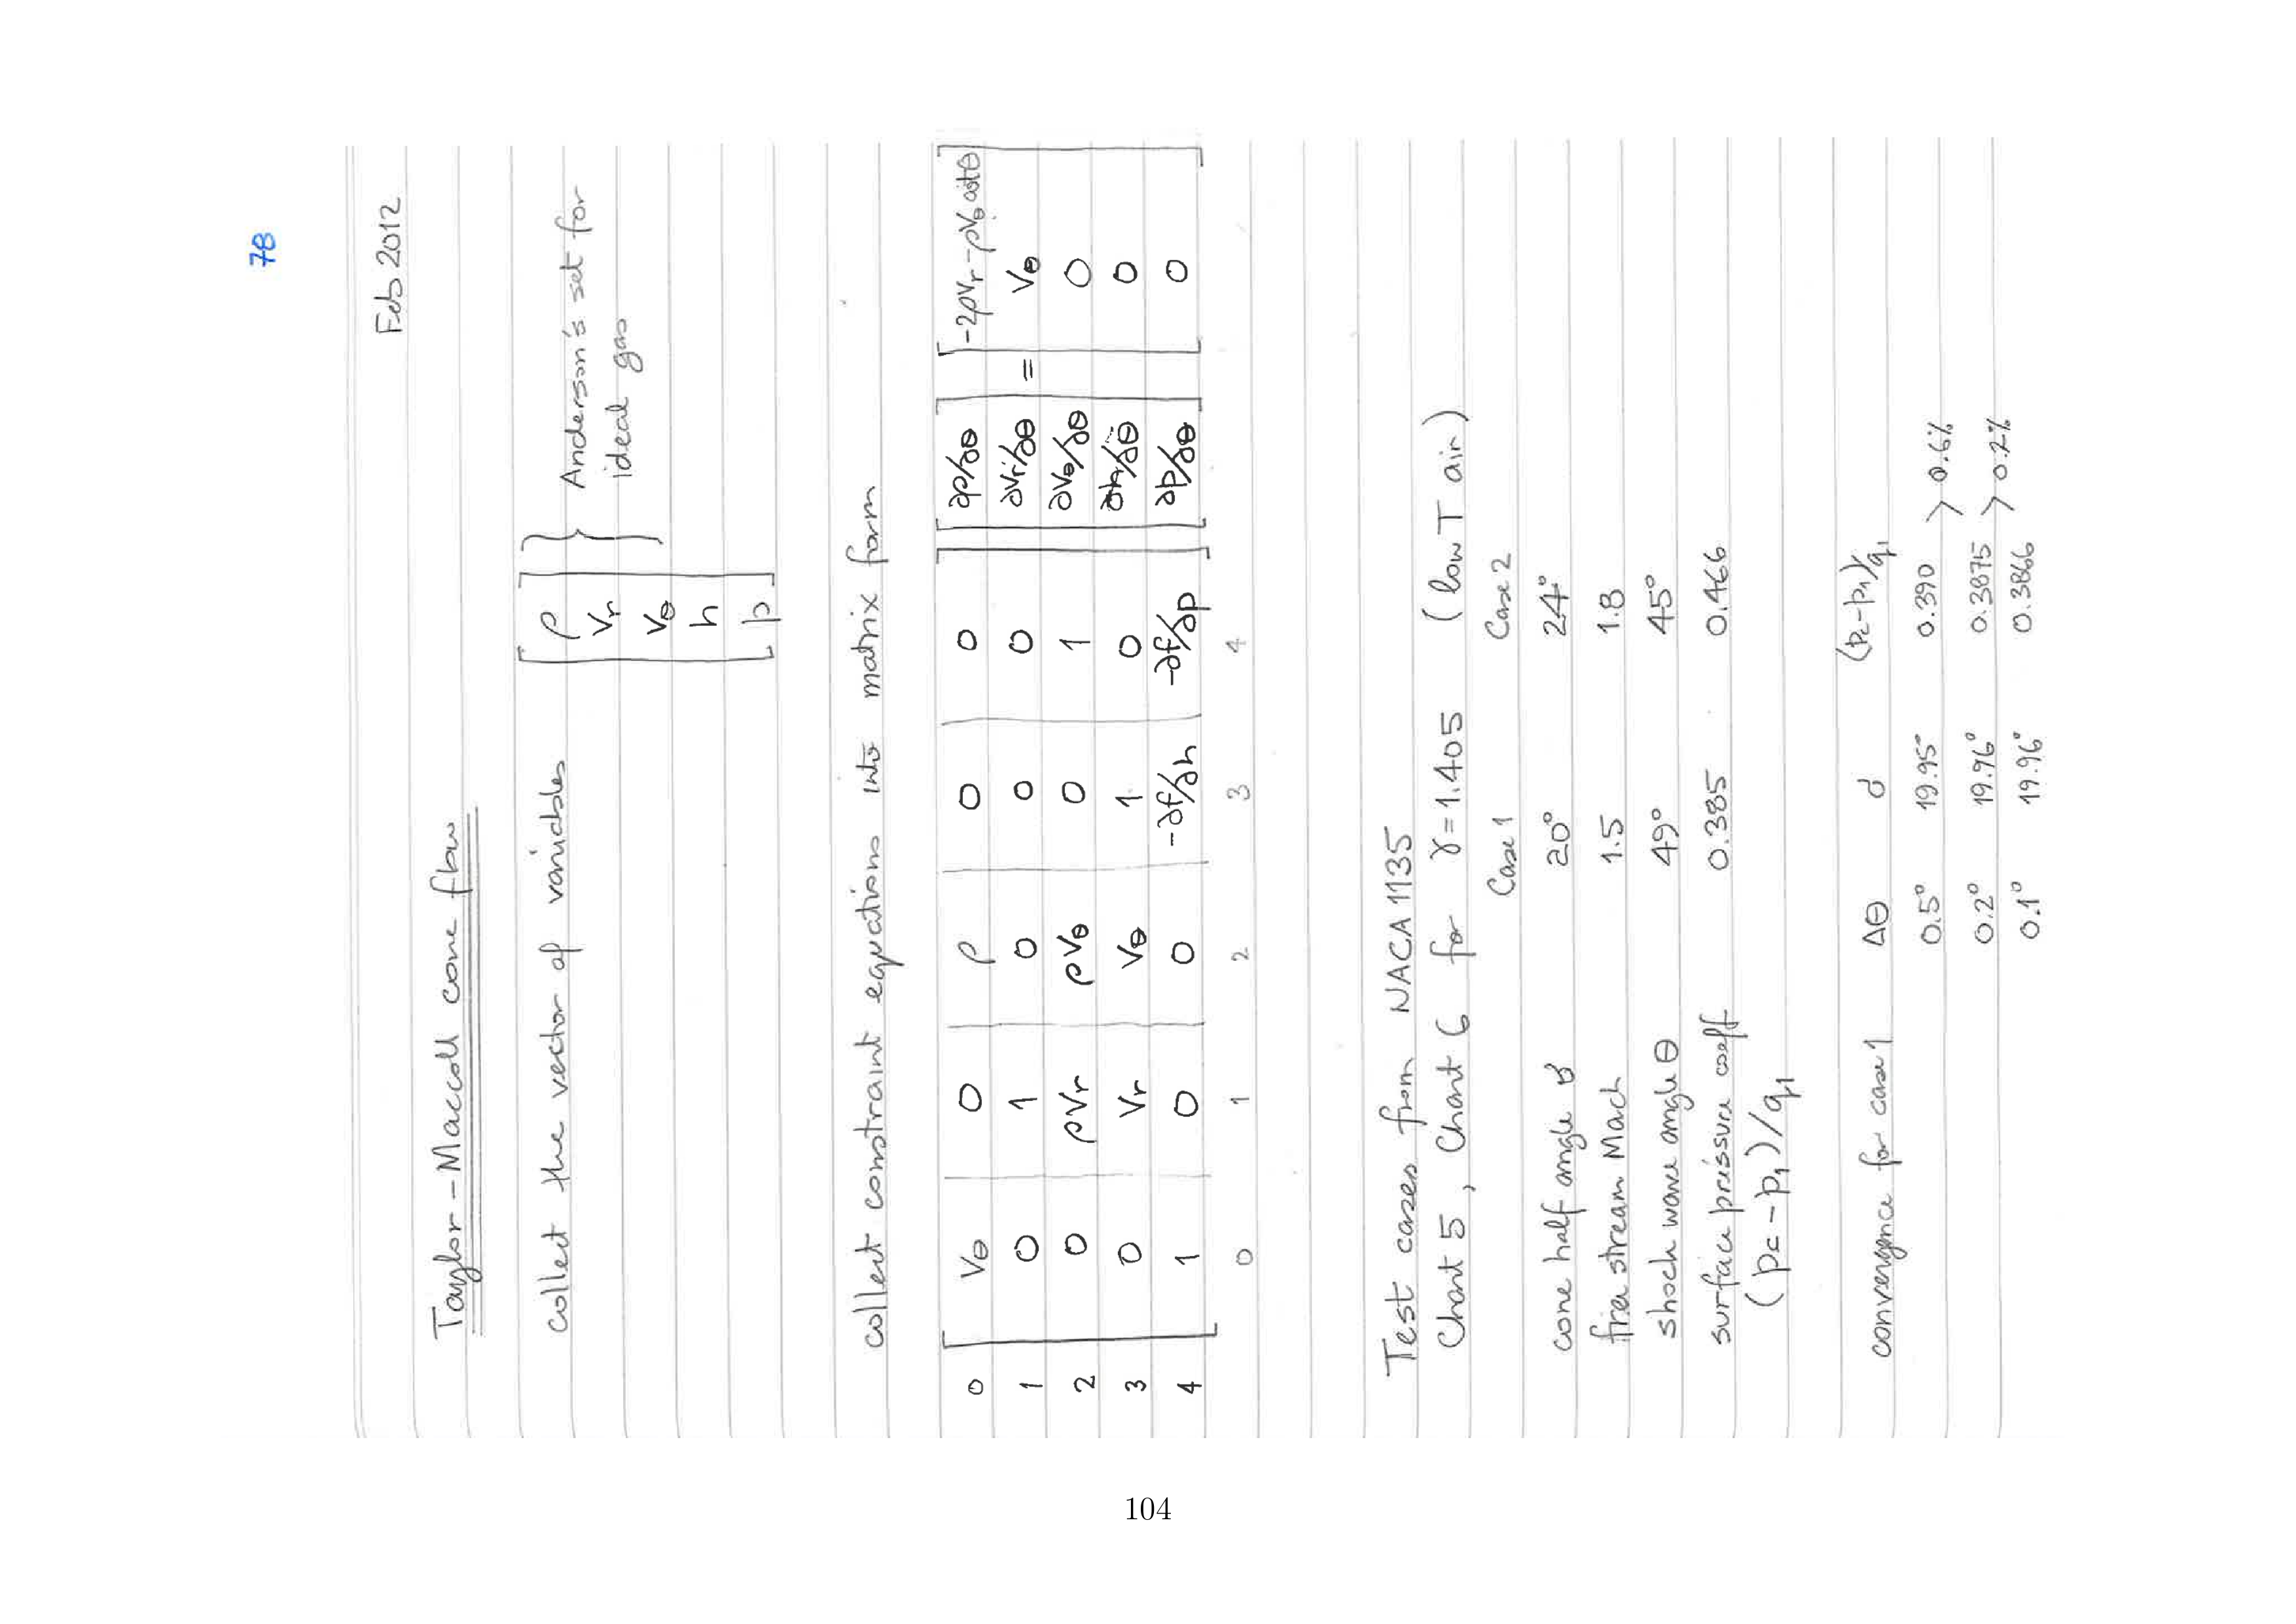 78
Feb 2012
Taylor-Maccoll cone flow
collect the vector of variables [ ρ
Vr
Vθ
h
p ] } Anderson's set for
ideal gas
collect constraint equations into matrix form
0 [ Vθ 0 ρ 0 0 ] [ ∂ρ/∂θ ] [ -2ρVr - ρVθ cotθ ]
1 0 1 0 0 0 ∂Vr/∂θ = Vθ
2 0 ρVr ρVθ 0 1 ∂Vθ/∂θ 0
3 0 Vr Vθ 1 0 ∂h/∂θ 0
4 1 0 0 -∂f/∂h -∂f/∂p ∂p/∂θ 0
0 1 2 3 4
Test cases from NACA 1135
Chart 5, Chart 6 for γ=1.405 (low T air)
Case 1 Case 2
cone half angle σ 20° 24°
free stream Mach 1.5 1.8
shock wave angle θ 49° 45°
surface pressure coeff 0.385 0.466
(pc - p1)/q1
convergence for case 1 Δθ σ (pc-p1)/q1
0.5° 19.95° 0.390 > 0.6%
0.2° 19.96° 0.3875 > 0.2%
0.1° 19.96° 0.3866
104